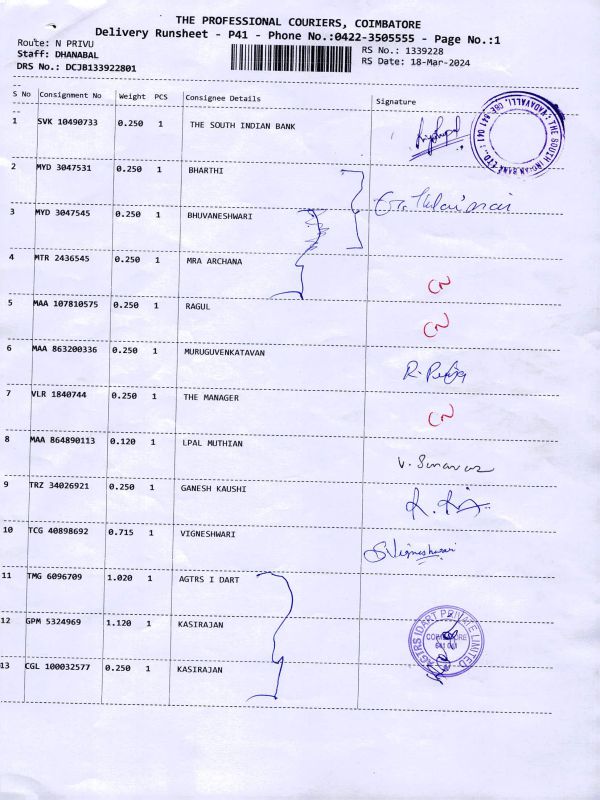 THE PROFESSIONAL COURIERS, COIMBATORE
Delivery Runsheet - P41 - Phone No.:0422-3505555 - Page No.:1
Route: N PRIVU
RS No.: 1339228
Staff: DHANABAL
RS Date: 18-Mar-2024
DRS No.: DCJB133922801
S No Consignment No Weight PCS Consignee Details Signature
1 SVK 10490733 0.250 1 THE SOUTH INDIAN BANK
THE SOUTH INDIAN BANK LTD., VADAVALLI, CBE 641 041
2 MYD 3047531 0.250 1 BHARTHI
3 MYD 3047545 0.250 1 BHUVANESHWARI
4 MTR 2436545 0.250 1 MRA ARCHANA CN
5 MAA 107810575 0.250 1 RAGUL CN
6 MAA 863200336 0.250 1 MURUGUVENKATAVAN R.
7 VLR 1840744 0.250 1 THE MANAGER CN
8 MAA 864890113 0.120 1 LPAL MUTHIAN V.
9 TRZ 34026921 0.250 1 GANESH KAUSHI
10 TCG 40898692 0.715 1 VIGNESHWARI S.Vigneshwari
11 TMG 6096709 1.020 1 AGTRS I DART
12 GPM 5324969 1.120 1 KASIRAJAN
AGTRS IDART PRIVATE LIMITED
COIMBATORE
641 041
13 CGL 100032577 0.250 1 KASIRAJAN